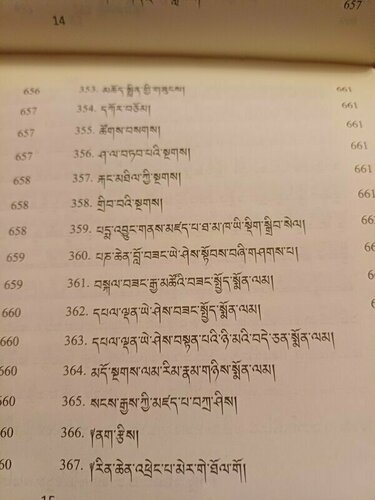 14
657
656 353. མཆོད་སྦྱིན་གྱི་གཟུངས། 661
657 354. དཀོར་བཅོམ། 661
657 355. ཚོགས་བསགས། 661
657 356. ཤ་ལ་བཏབ་པའི་སྔགས། 661
658 357. རྐང་མཐིལ་ཀྱི་སྔགས། 661
658 358. གྲིབ་བའི་སྔགས། 661
659 359. པདྨ་འབྱུང་གནས་མཛད་པ་ཐ་མ་ཁ་ཡི་སྡིག་སྒྲིབ་སེལ།
659 360. པཎ་ཆེན་བློ་བཟང་ཡེ་ཤེས་སྟོབས་བཞི་གཤགས་པ།
659 361. བསྐལ་བཟང་རྒྱ་མཚོའི་བཟང་སྤྱོད་སྨོན་ལམ།
660 362. དཔལ་ལྡན་ཡེ་ཤེས་བཟང་སྤྱོད་སྨོན་ལམ།
660 363. དཔལ་ལྡན་ཡེ་ཤེས་བསྟན་པའི་ཉི་མའི་བདེ་ཅན་སྨོན་ལམ།
660 364. མདོ་སྔགས་ལམ་རིམ་རྣམ་གཉིས་སྨོན་ལམ།
660 365. སངས་རྒྱས་ཀྱི་མཛད་པ་བཀྲ་ཤིས།
60 366. ༈ནག་རྩིས།
60 367. ༈རིན་ཆེན་འཕྲེང་པ་མེར་གེ་ཐོལ་གོ།
15